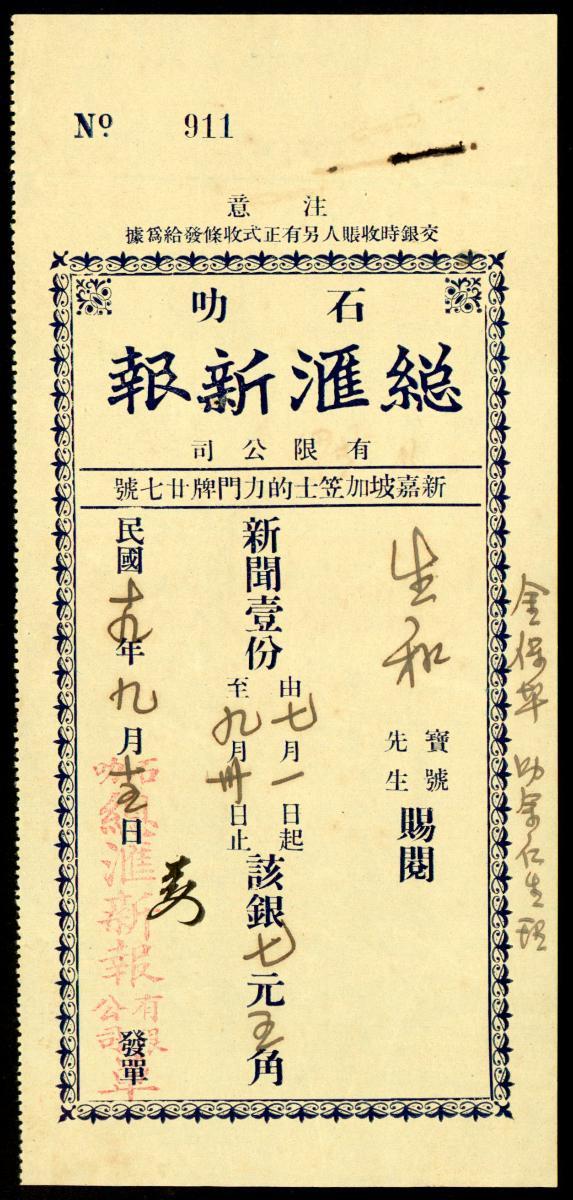 Nº 911
注意
交銀時收賬人另有正式收條發給爲據
石叻
總滙新報
有限公司
新嘉坡加笠士的力門牌廿七號
生和
寶號
先生
賜閱
新聞壹份
由七月一日起
至九月卅日止
該銀七元五角
民國十九年九月十五日
發單
石叻
總滙新報
有限
公司
單